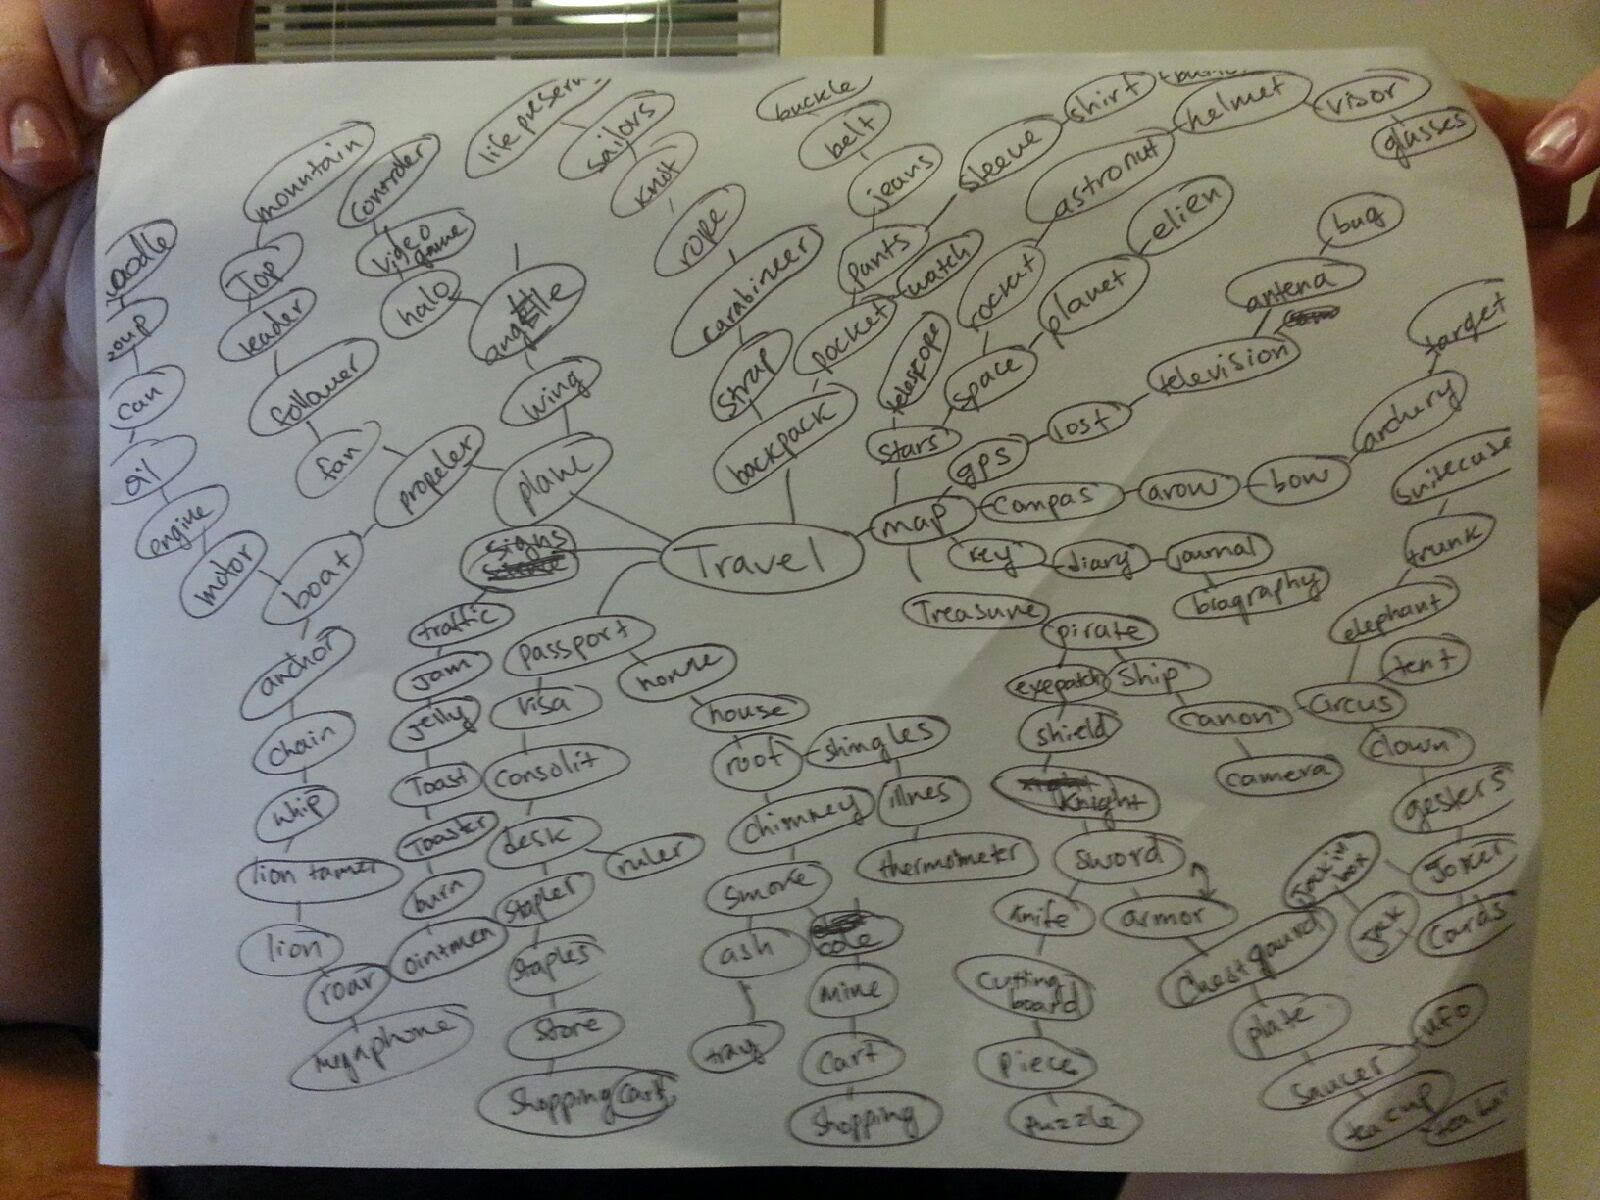 Travel
plane
wing
halo
video
game
controler
propeler
fan
follower
leader
Top
mountain
boat
motor
engine
oil
can
soup
noodle
anchor
chain
whip
lion tamer
lion
roar
megaphone
signs
traffic
Jam
jelly
Toast
Toaster
burn
ointmen
passport
visa
consolit
desk
ruler
stapler
staples
Store
Shopping cart
home
house
roof
shingles
illnes
thermometer
chimney
smoke
ash
tray
cole
mine
cart
Shopping
backpack
strap
carabineer
rope
knot
sailors
life preserv
pocket
watch
pants
jeans
belt
buckle
sleeve
shirt
map
stars
telescope
space
rockat
astronut
helmet
visor
glasses
planet
elien
gps
lost
television
antena
bug
compas
arow
bow
archery
target
key
diary
journal
biography
Treasure
pirate
eyepatch
ship
canon
camera
shield
Knight
sword
knife
cutting
board
piece
puzzle
armor
chest gaurd
plate
saucer
ufo
tea cup
circus
tent
elephant
trunk
suitecase
clown
gesters
Joker
cards
Jack
Jack in
box